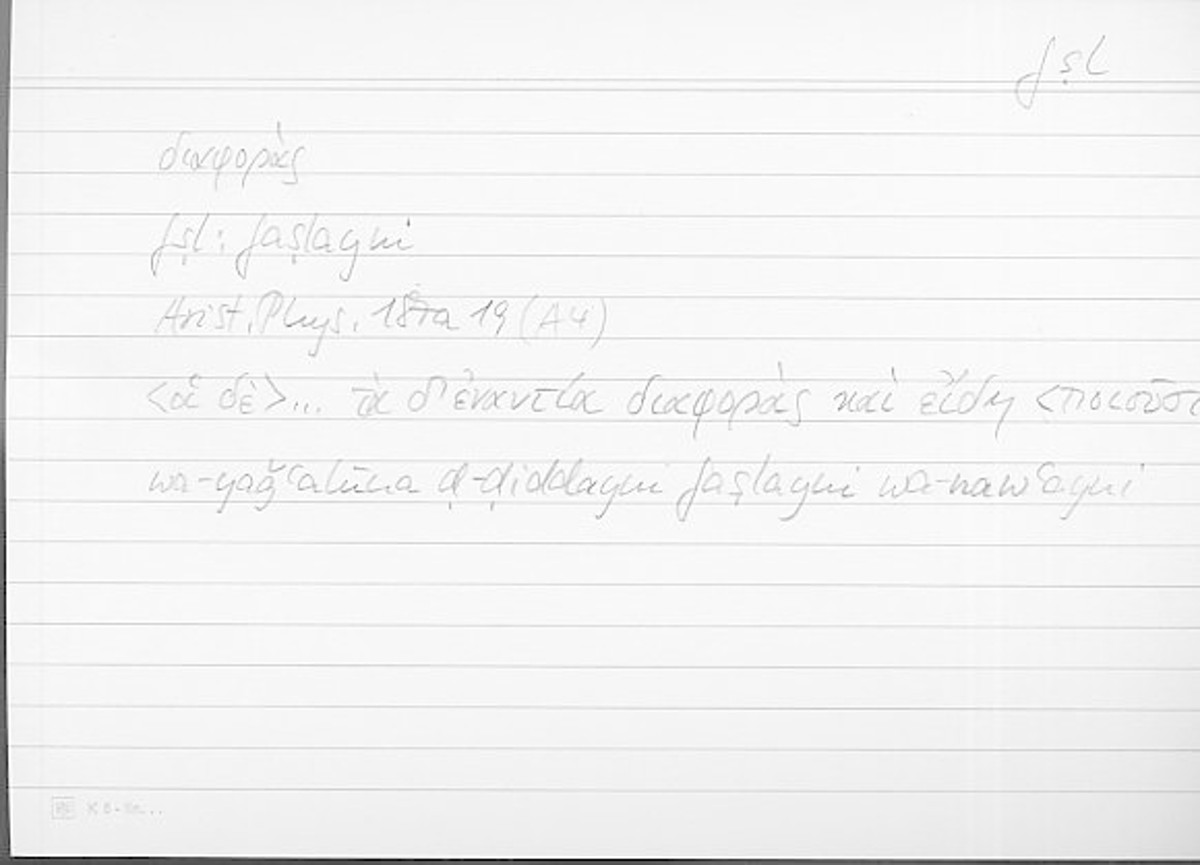 fṣl
διαφοράς
fṣl: faṣlayni
Arist. Phys. 187a 19 (A4)
<οἱ δὲ>... τὰ δ' ἐναντία διαφορὰς καὶ εἴδη <ποιοῦσι
wa-yaǧʿalūna ḍ-ḍiddayni faṣlayni wa-nawʿayni